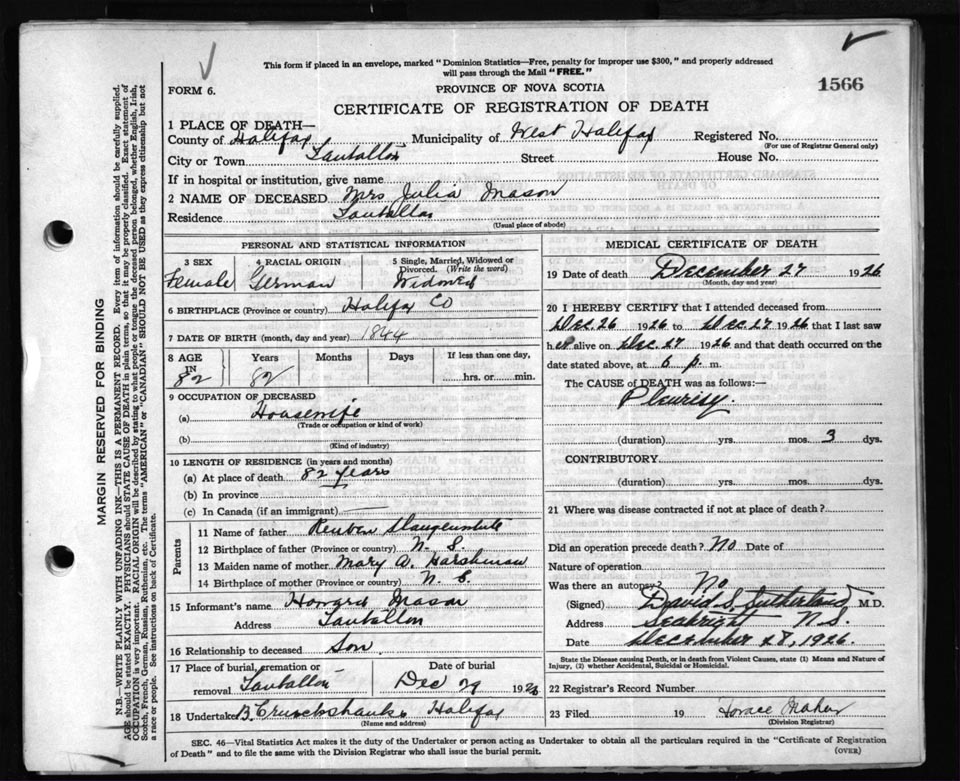 This form if placed in an envelope, marked "Dominion Statistics—Free, penalty for improper use $300," and properly addressed
will pass through the Mail "FREE."
FORM 6.
PROVINCE OF NOVA SCOTIA
1566
CERTIFICATE OF REGISTRATION OF DEATH
1 PLACE OF DEATH—
County of Halifax Municipality of West Halifax Registered No.
(For use of Registrar General only)
City or Town Tantallon Street House No.
If in hospital or institution, give name
2 NAME OF DECEASED Mrs Julia Mason
Residence Tantallon
(Usual place of abode)
PERSONAL AND STATISTICAL INFORMATION
3 SEX 4 RACIAL ORIGIN 5 Single, Married, Widowed or
Divorced. (Write the word)
Female German Widowed
6 BIRTHPLACE (Province or country) Halifax Co
7 DATE OF BIRTH (month, day and year) 1844
8 AGE Years Months Days If less than one day,
IN
82 82 hrs. or min.
9 OCCUPATION OF DECEASED
(a) Housewife
(Trade or occupation or kind of work)
(b)
(Kind of industry)
10 LENGTH OF RESIDENCE (in years and months)
(a) At place of death 82 years
(b) In province
(c) In Canada (if an immigrant)
Parents
11 Name of father Reuben
12 Birthplace of father (Province or country) N. S.
13 Maiden name of mother Mary A. Harshman
14 Birthplace of mother (Province or country) N. S.
15 Informant's name Howard Mason
Address Tantallon
16 Relationship to deceased Son.
17 Place of burial, cremation or Date of burial
removal Tantallon Dec 29 1926
18 Undertaker B. Cruickshank Halifax
(Name and address)
MEDICAL CERTIFICATE OF DEATH
19 Date of death December 27 1926
(Month, day and year)
20 I HEREBY CERTIFY that I attended deceased from
Dec 26 1926 to Dec 27 1926 that I last saw
her alive on Dec 27 1926 and that death occurred on the
date stated above, at 6 p. m.
The CAUSE OF DEATH was as follows:—
Pleurisy.
(duration) yrs. mos. 3 dys.
CONTRIBUTORY
(duration) yrs. mos. dys.
21 Where was disease contracted if not at place of death?
Did an operation precede death? No Date of
Nature of operation
Was there an autopsy? No
(Signed) David S. Sutherland M.D.
Address Seabright N.S.
Date December 28, 1926.
State the Disease causing Death, or in death from Violent Causes, state (1) Means and Nature of
Injury, (2) whether Accidental, Suicidal or Homicidal.
22 Registrar's Record Number
23 Filed 19 Horace Mahar
(Division Registrar)
SEC. 46—Vital Statistics Act makes it the duty of the Undertaker or person acting as Undertaker to obtain all the particulars required in the "Certificate of Registration
of Death" and to file the same with the Division Registrar who shall issue the burial permit. (OVER)
MARGIN RESERVED FOR BINDING
N.B.—WRITE PLAINLY WITH UNFADING INK—THIS IS A PERMANENT RECORD. Every item of information should be carefully supplied.
AGE should be stated EXACTLY. PHYSICIANS should STATE CAUSE OF DEATH in plain terms, so that it may be properly classified. Exact statement of
OCCUPATION is very important. RACIAL ORIGIN will be described by stating to what people or tongue the deceased person belonged, whether English, Irish,
Scotch, French, German, Russian, Ruthenian, etc. The terms "AMERICAN" or "CANADIAN" SHOULD NOT BE USED as they express citizenship but not
a race or people. See instructions on back of Certificate.